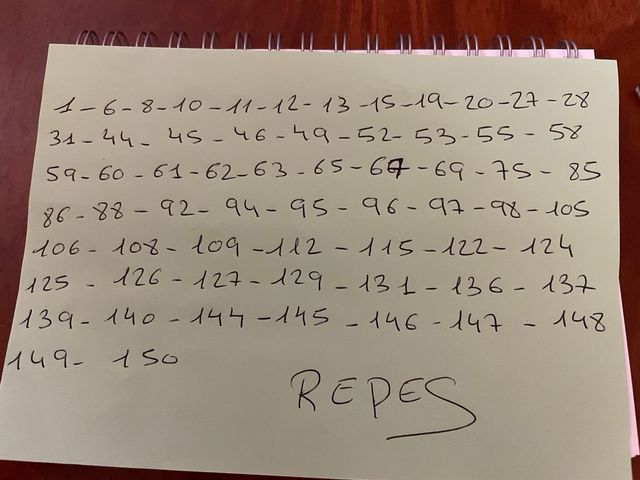 1-6-8-10-11-12-13-15-19-20-27-28
31-44-45-46-49-52-53-55-58
59-60-61-62-63-65-67-69-75-85
86-88-92-94-95-96-97-98-105
106-108-109-112-115-122-124
125-126-127-129-131-136-137
139-140-144-145-146-147-148
149-150
REPES